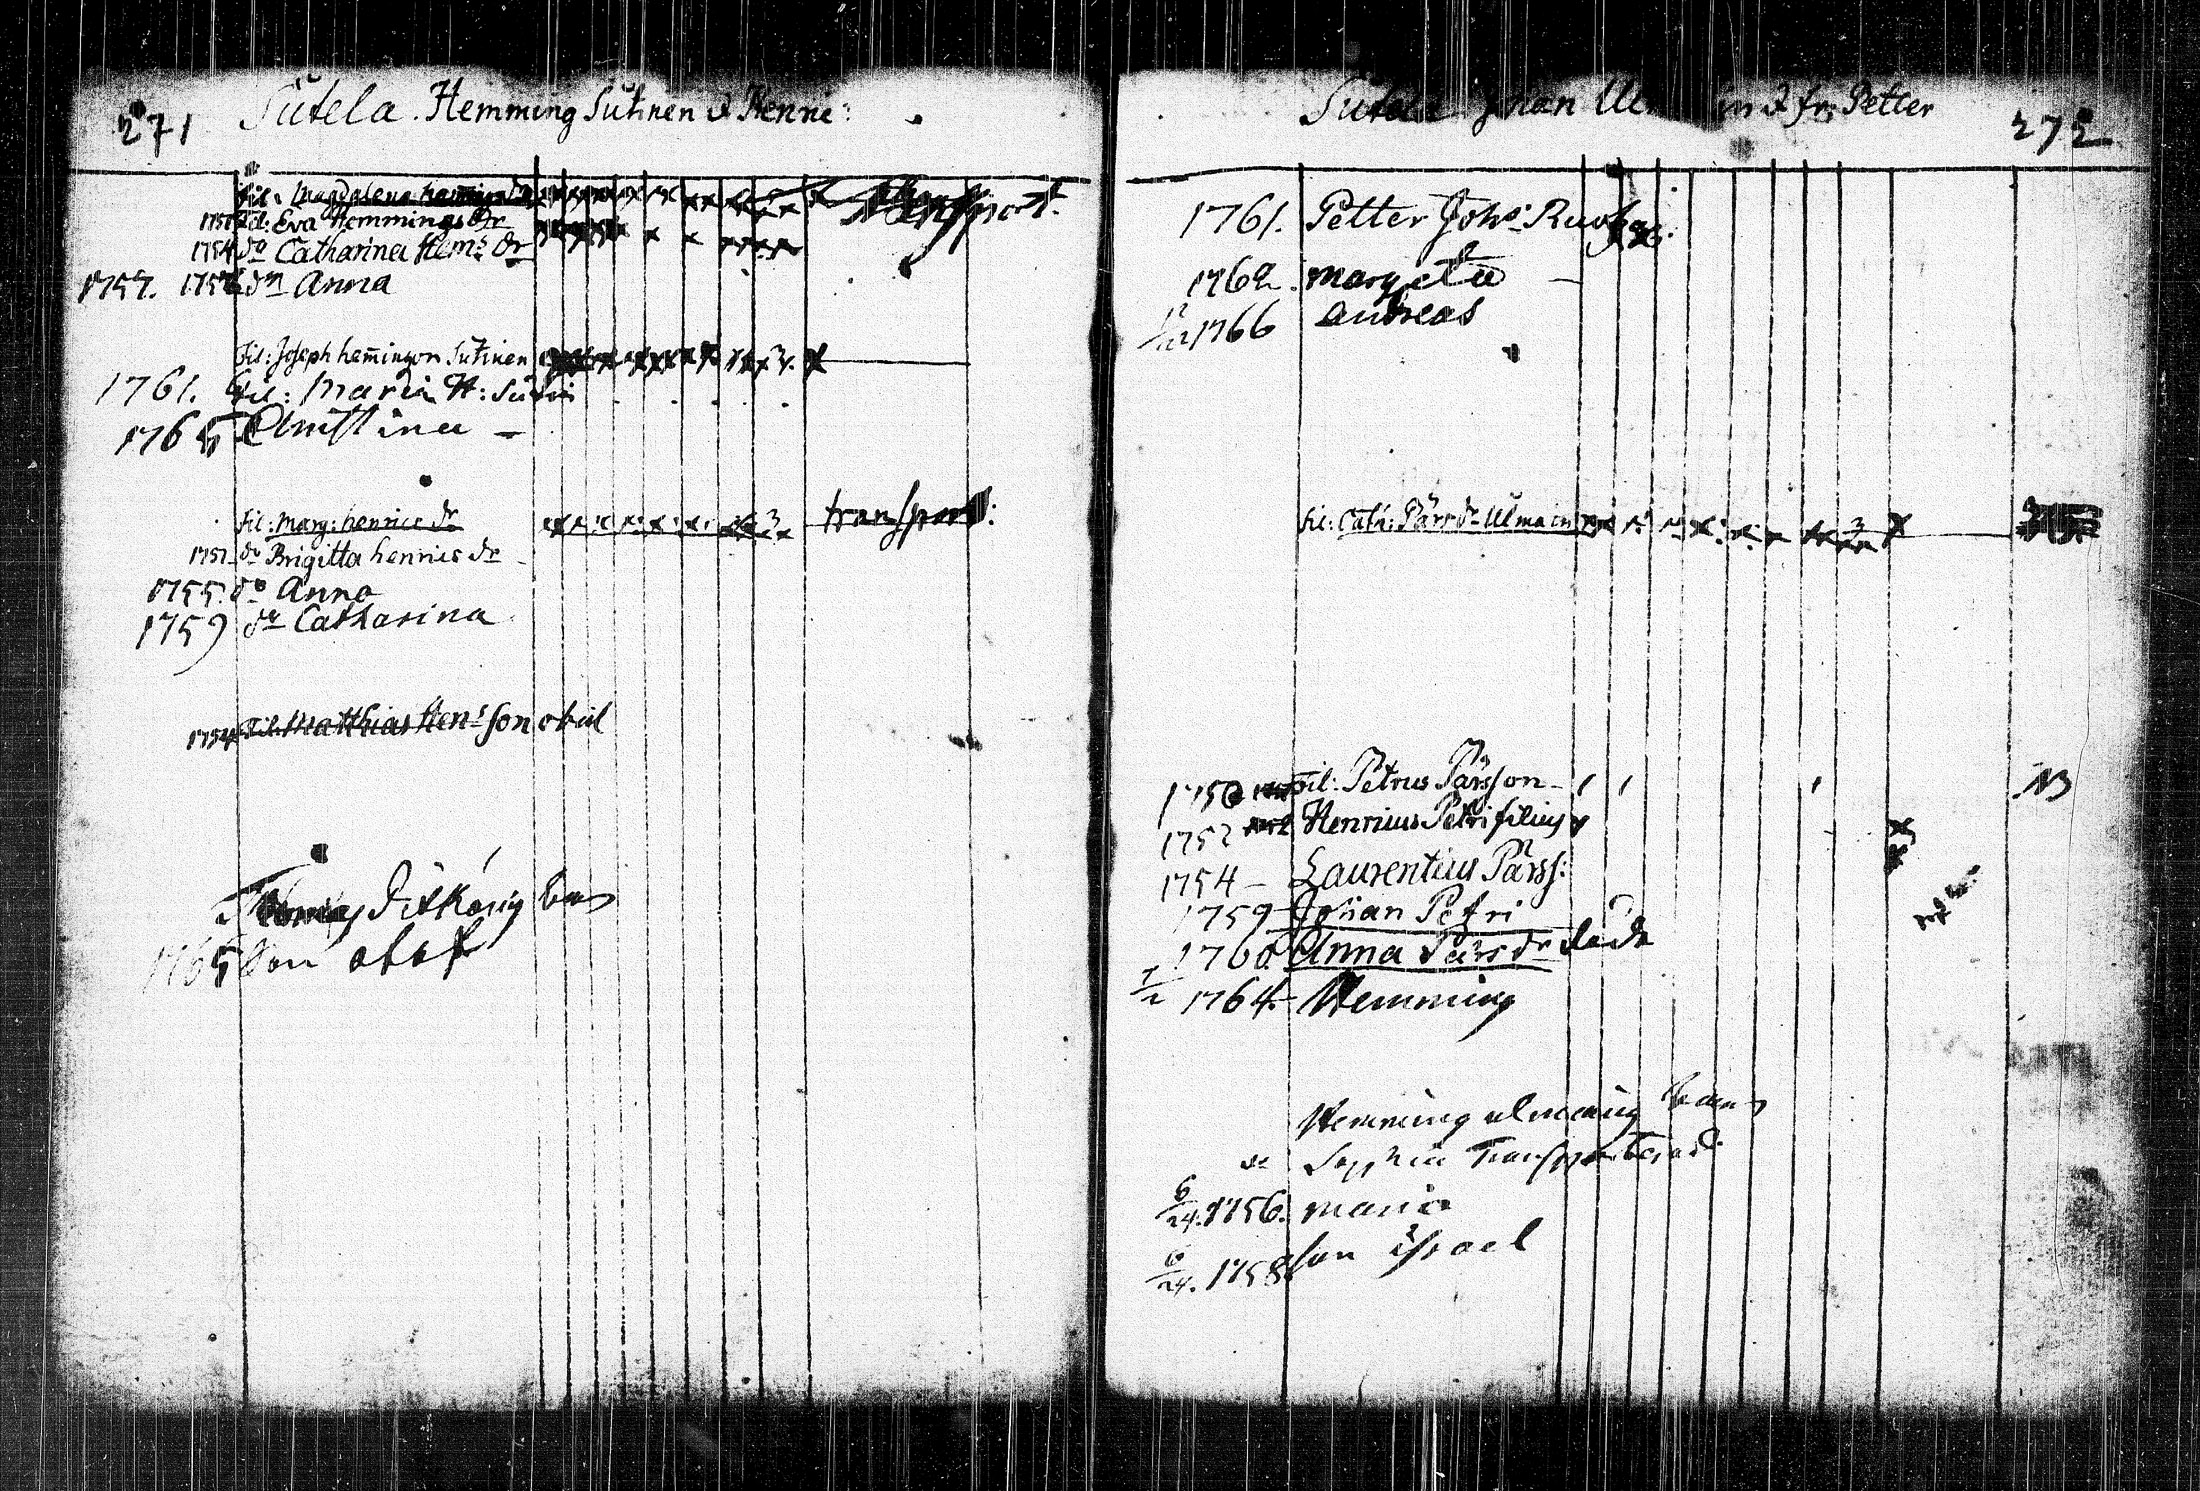 271 Sutela. Hemming Sutinen & Henri:
fil: Magdalena Hemmings Dr transport.
1751 fil: Eva Hemmings Dr
1754 do Catharina Hem: Dr
1757. dn Anna
fil: Joseph hemingson Sutinen
1761. fil: Maria H: Sutin
1765 Christina –
fil: Marg: henrics dr transport:
1751 do Brigitta henrics dr
1755. do Anna
1759 dr Catharina
1754 fil: Matthias Hen: son obiit
barn
1765 Son olof
Sutela Johan & fr: Petter 272
1761. Petter Johs:
1762. Margeta –
1766 Andreas
fil: Cath: Pärs dr Ulmain
1750 fil: Petrus Pärsson – 13
1752 Henricus Petri filius
1754 – Laurentius Pärss:
1759 – Johan Petri
1760. Anna Pärs dr döda
1/2 1764. – Hemming
Hemming ulmaing barn
Sophia Transporterad
6/24. 1756. Maria
6/24. 1758. son israel